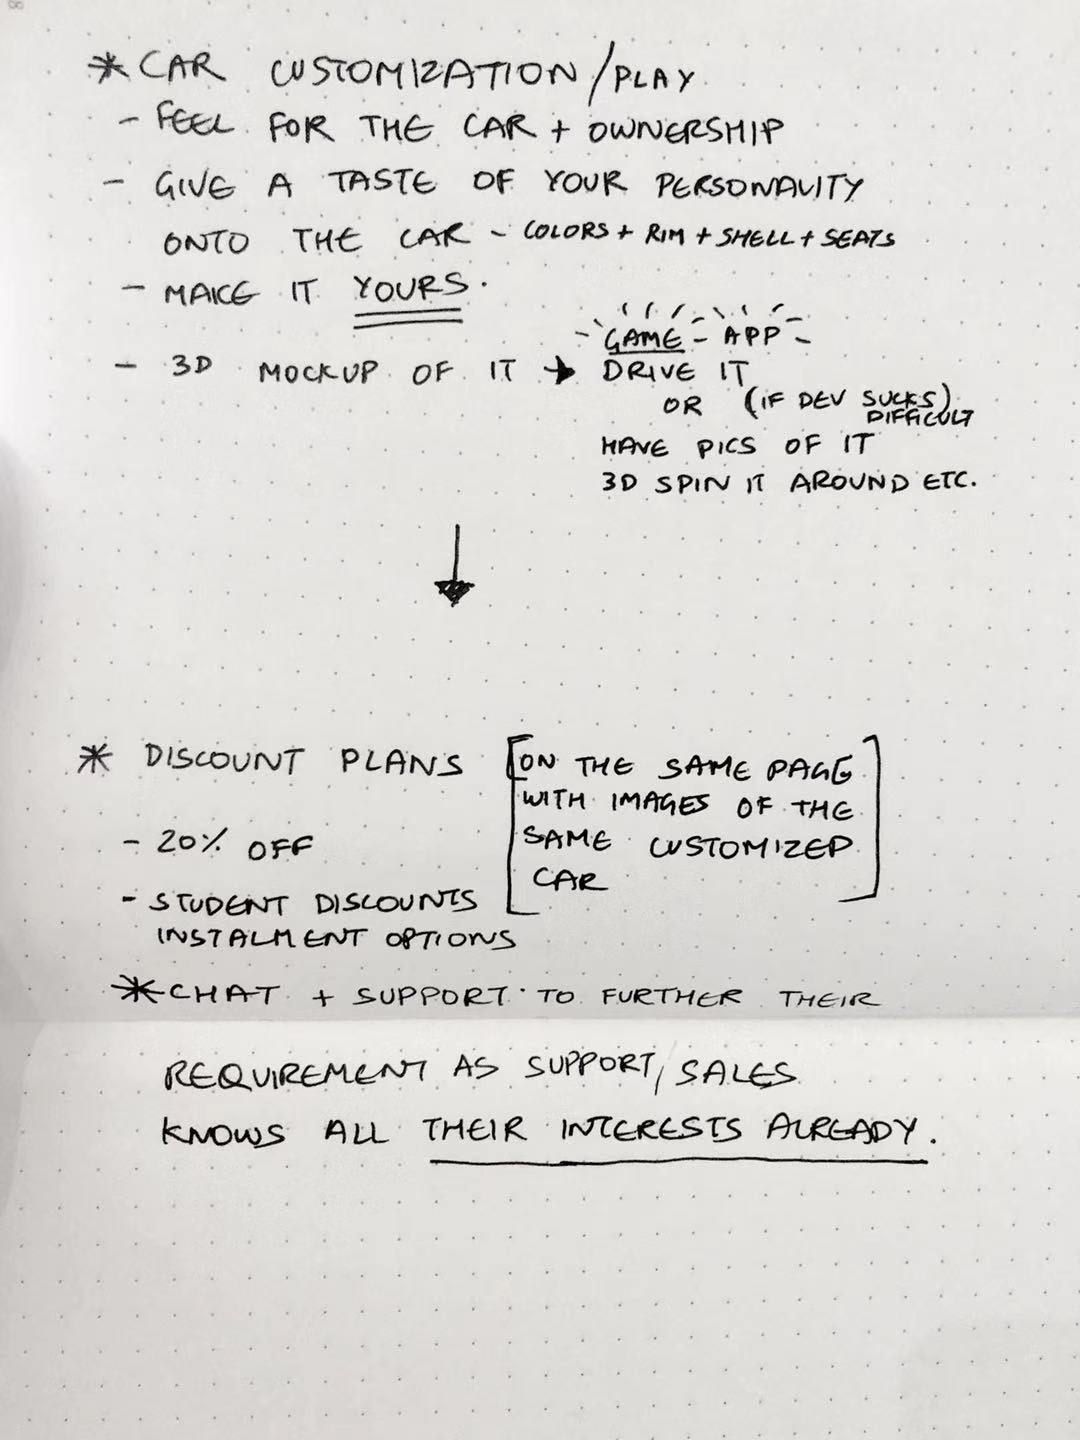 * CAR CUSTOMIZATION/PLAY
- FEEL FOR THE CAR + OWNERSHIP
- GIVE A TASTE OF YOUR PERSONALITY
ONTO THE CAR - COLORS + RIM + SHELL + SEATS
- MAKE IT YOURS.
GAME - APP -
- 3D MOCKUP OF IT → DRIVE IT
OR (IF DEV SUCKS)
DIFFICULT
HAVE PICS OF IT
3D SPIN IT AROUND ETC.
* DISCOUNT PLANS [ON THE SAME PAGE
WITH IMAGES OF THE
SAME CUSTOMIZED
CAR]
- 20% OFF
- STUDENT DISCOUNTS
INSTALMENT OPTIONS
* CHAT + SUPPORT TO FURTHER THEIR
REQUIREMENT AS SUPPORT/SALES
KNOWS ALL THEIR INTERESTS ALREADY.